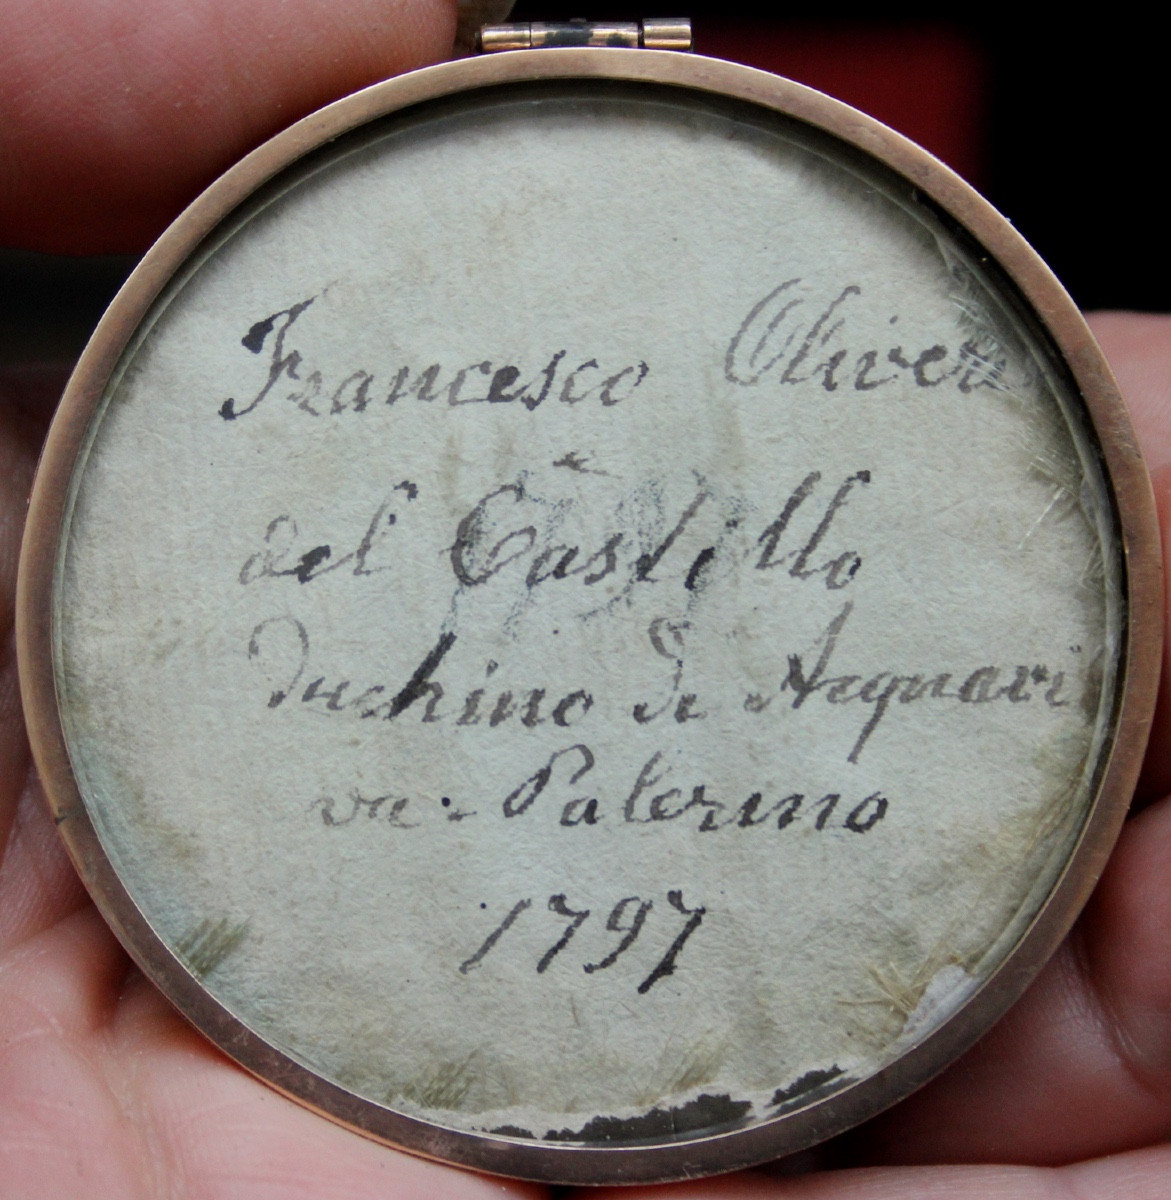 Francesco Oliveri
del Castillo
Duchino di Acquavi
va - Palermo
1797